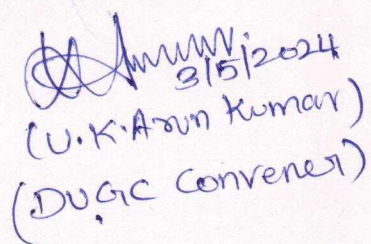 3/5/2024
(U.K.Arun Kumar)
(DUGC Convener)